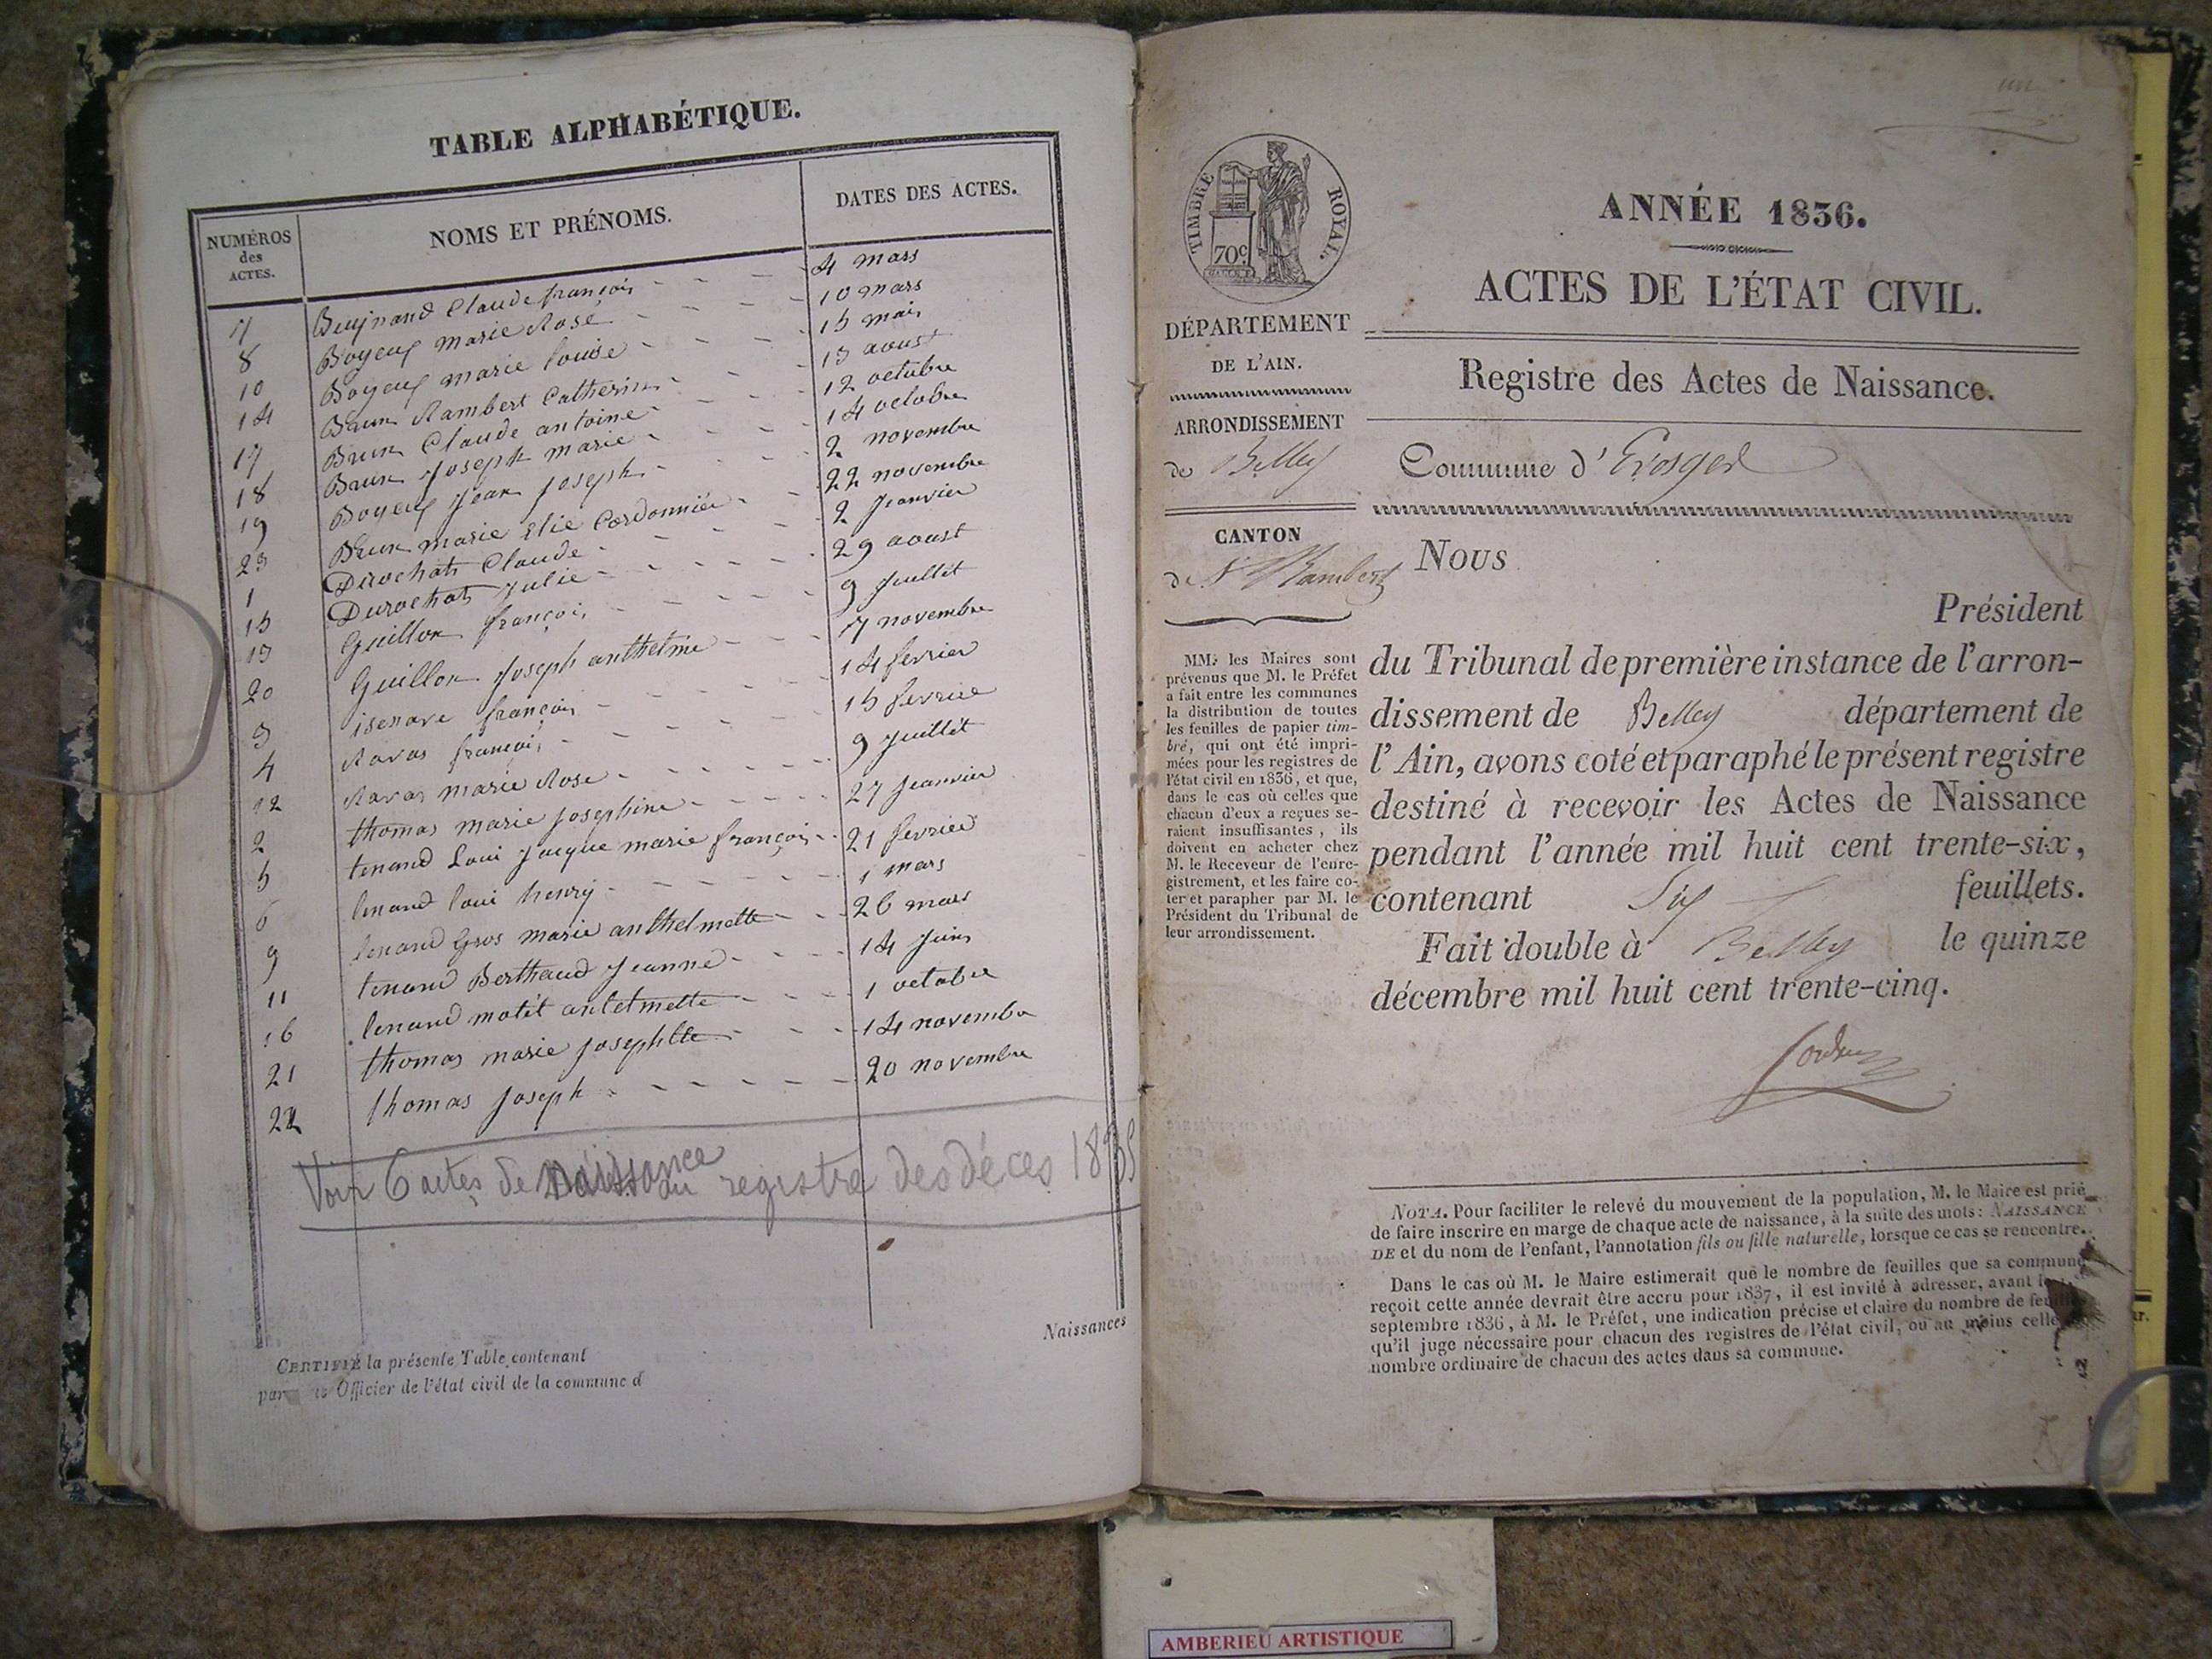 TABLE ALPHABÉTIQUE.
NUMÉROS des ACTES. NOMS ET PRÉNOMS. DATES DES ACTES.
7 Claude françois 4 mars
8 Boyeux marie Rose 10 mars
10 Boyeux marie Louise 15 mai
14 Brun Rambert Catherin 13 aoust
17 Brun Claude antoine 12 octobre
18 Brun Joseph marie 14 octobre
19 Boyeux Jean Joseph 2 novembre
23 Brun marie Elie Cordonnier 22 novembre
1 Durochat Claude 2 Janvier
15 Durochat Julie 29 aoust
13 Guillon françois 9 Juillet
20 Guillon Joseph anthelme 7 novembre
3 isenare françois 14 fevrier
4 Ravas françois 15 fevrier
12 Ravas marie Rose 9 Juillet
2 thomas marie Josephine 27 Janvier
5 tenand Loui Jacque marie françois 21 fevrier
6 tenand loui henry 1 mars
9 tenand Gros marie anthelmette 26 mars
11 tenand Berthaud Jeanne 14 Juin
16 tenand motit antelmette 1 octobre
21 thomas marie Josephtte 14 novembre
22 thomas Joseph 20 novembre
Voir 6 actes de Naissance au registre des déces 1835
Naissances
CERTIFIÉ la présente Table contenant
par Officier de l'état civil de la commune d
TIMBRE ROYAL
70c
DÉPARTEMENT
DE L'AIN.
ARRONDISSEMENT
de Belley
CANTON
de St Rambert
MM. les Maires sont
prévenus que M. le Préfet
a fait entre les communes
la distribution de toutes
les feuilles de papier tim-
bré, qui ont été impri-
mées pour les registres de
l'état civil en 1836, et que,
dans le cas où celles que
chacun d'eux a reçues se-
raient insuffisantes, ils
doivent en acheter chez
M. le Receveur de l'enre-
gistrement, et les faire co-
ter et parapher par M. le
Président du Tribunal de
leur arrondissement.
ANNÉE 1836.
ACTES DE L'ÉTAT CIVIL.
Registre des Actes de Naissance.
Commune d'
Nous
Président
du Tribunal de première instance de l'arron-
dissement de Belley département de
l'Ain, avons coté et paraphé le présent registre
destiné à recevoir les Actes de Naissance
pendant l'année mil huit cent trente-six,
contenant Six feuillets.
Fait double à Belley le quinze
décembre mil huit cent trente-cinq.
NOTA. Pour faciliter le relevé du mouvement de la population, M. le Maire est prié
de faire inscrire en marge de chaque acte de naissance, à la suite des mots: NAISSANCE
DE et du nom de l'enfant, l'annotation fils ou fille naturelle, lorsque ce cas se rencontre.
Dans le cas où M. le Maire estimerait que le nombre de feuilles que sa commune
reçoit cette année devrait être accru pour 1837, il est invité à adresser, avant
septembre 1836, à M. le Préfet, une indication précise et claire du nombre de
qu'il juge nécessaire pour chacun des registres de l'état civil, ou au moins celle
nombre ordinaire de chacun des actes dans sa commune.
AMBERIEU ARTISTIQUE